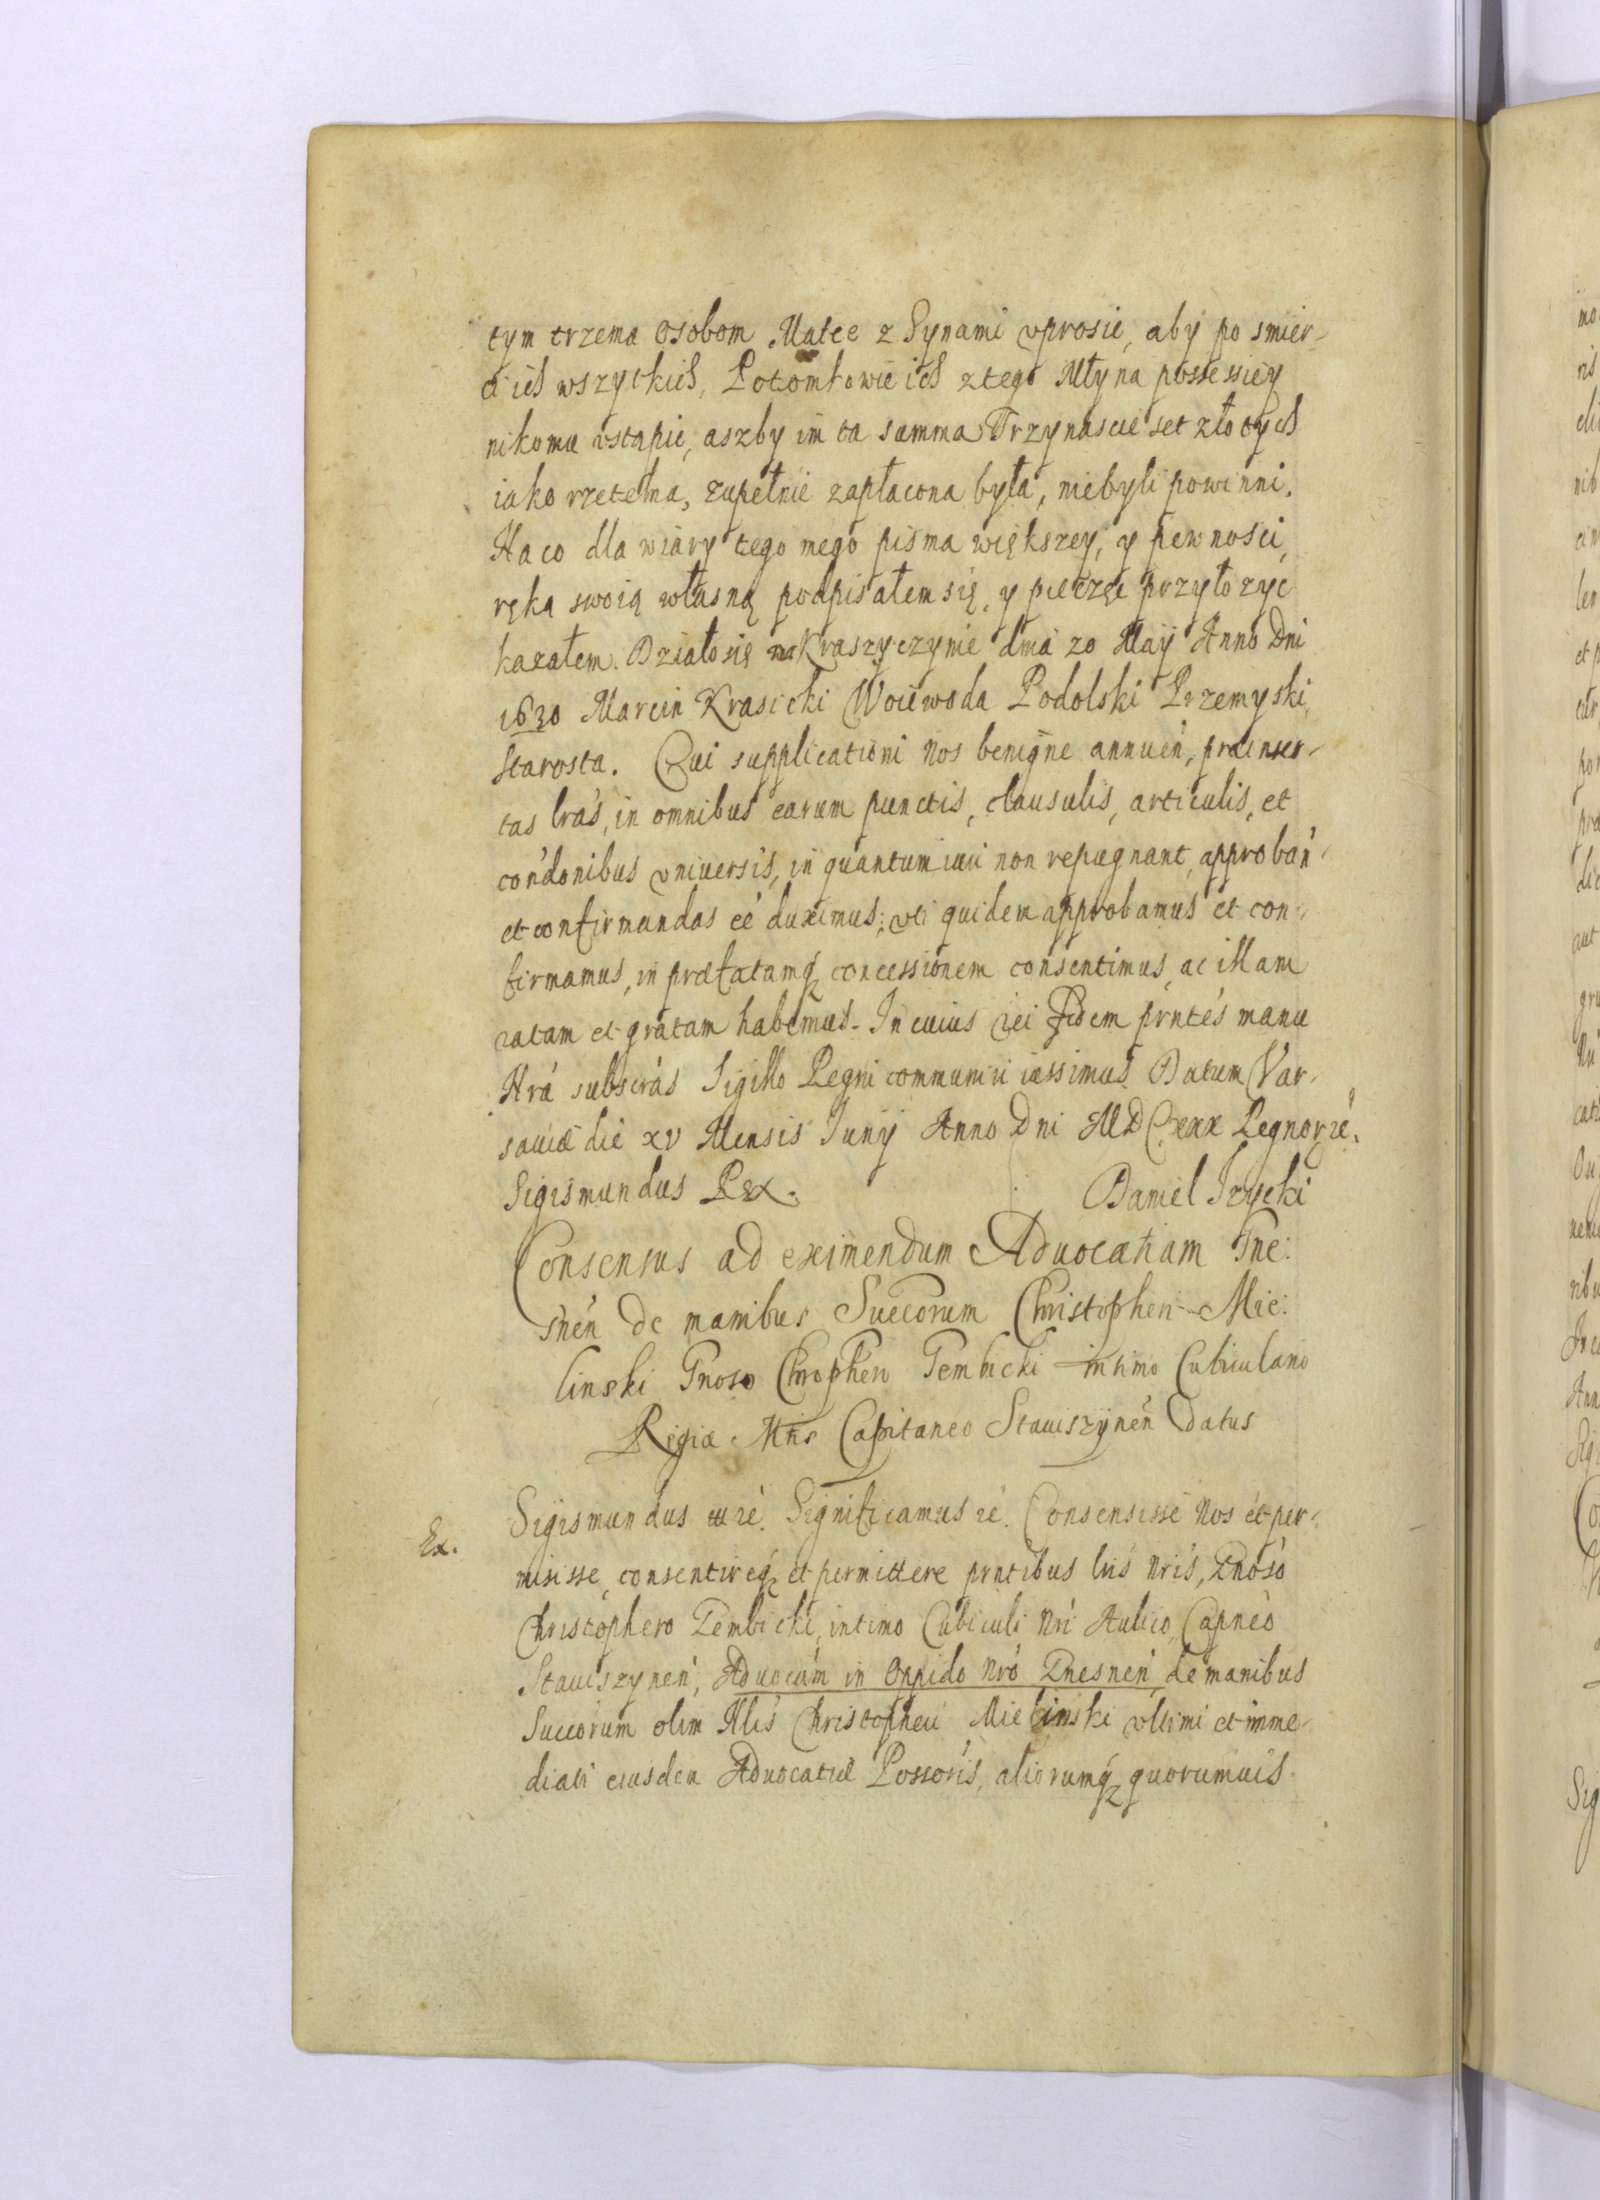 tym trzema osobom Matce z Synami uprosić, aby po smier-
ci ich wszytkich, Potomkowie ich z tego Młyna possessiey
nikomu ustąpić, aszby im ta summa Trzynascie set złotych
iako rzetelna, zupełnie zapłacona była, niebyli powinni.
Na co dla wiary tego mego pisma większey, y pewnosci,
ręką swoią własną podpisałem się, y pieczęć przyłozyć
kazałem. Działo się na Kraszyczynie dnia 20 Maij Anno Dni
1630 Marcin Krasicki Woiewoda Podolski Przemyski
Starosta. Qui supplicationi Nos benigne annuen, præinser-
tas lras, in omnibus earum punctis, clausulis, articulis, et
condonibus universis, in quantum iuri non repugnant, approban
et confirmandas ee duximus; uti quidem approbamus et con-
firmamus, in præfatamq concessionem consentimus, ac illam
ratam et gratam habemus. In cuius rei fidem prntes manu
Nra subscras Sigillo Regni communiri iussimus. Datum Var-
saviæ die xv Mensis Junij Anno Dni MDCxxx Regnor re.
Sigismundus Rex.
Daniel Irzycki
Consensus ad eximendum Advocatiam Gne:
snen de manibus Succorum Christopheri Mie:
linski Gnoso Chrophero Gembicki intimo Cubiculario
Regiæ Mtis Capitaneo Stawiszynen datus
Ex.
Sigismundus re. Significamus re. Consensisse Nos et per-
misisse, consentireq et permittere prntibus lris Nris, Gnoso
Christophero Gembicki, intimo Cubiculi Nri Aulico, Capneo
Stawiszynen, Advocam in Oppido Nro Gnesnen, de manibus
Succorum olim Nlis Christopheri Mielinski ultimi et imme-
diati eiusdem Advocatiæ Possoris, aliorumq quorumvis